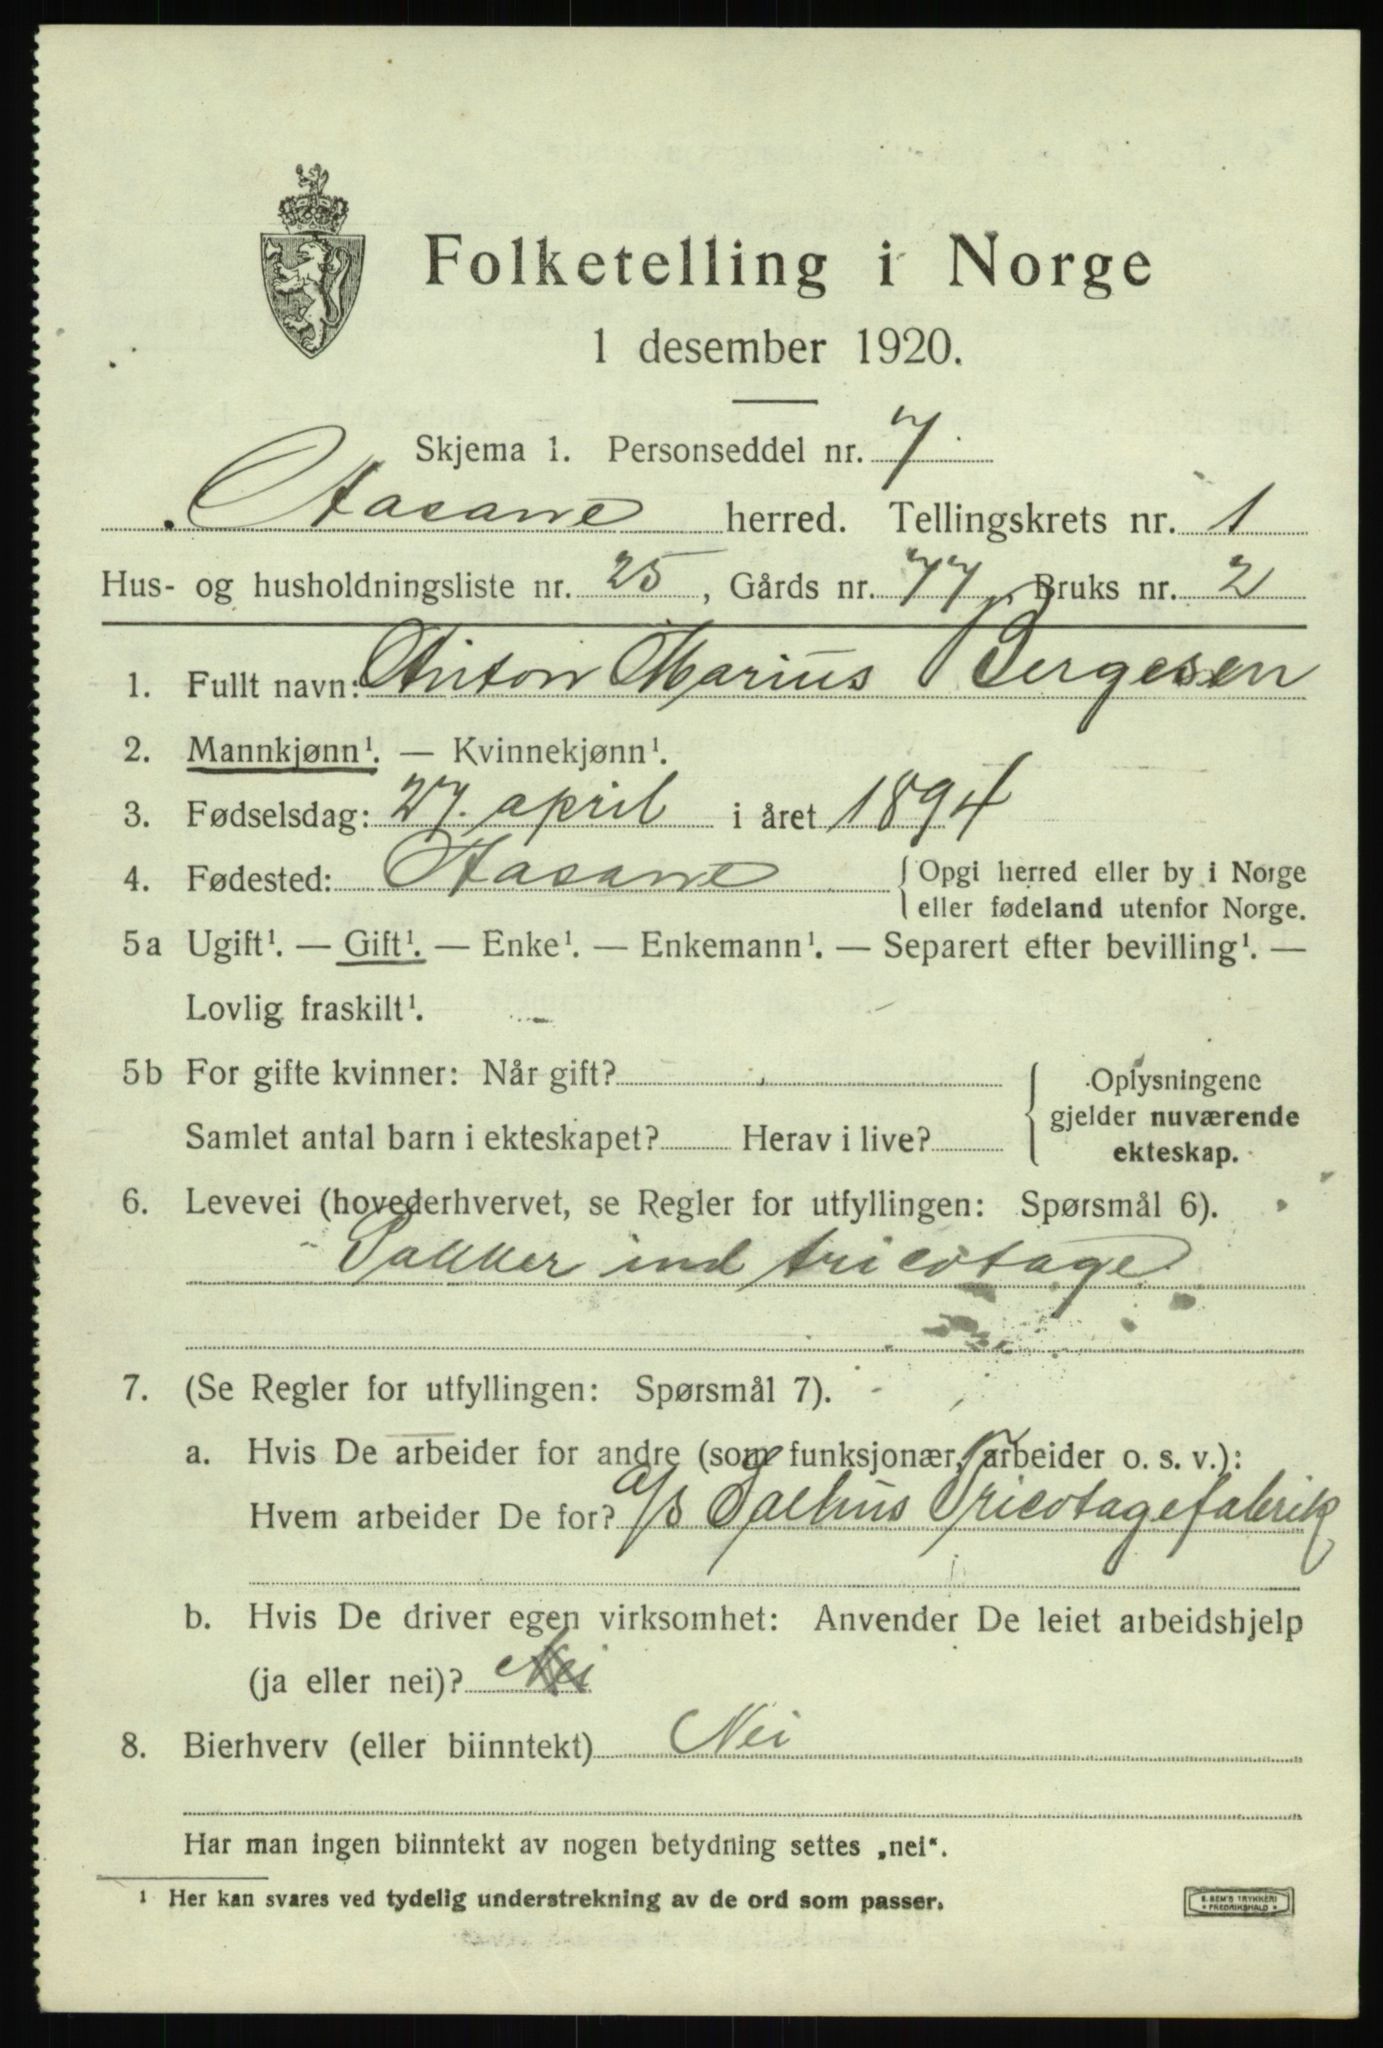 Folketelling i Norge
1 desember 1920.
Skjema 1. Personseddel nr. 7.
Aasane herred. Tellingskrets nr. 1
Hus- og husholdningsliste nr. 25, Gårds nr. 77, Bruks nr. 2
1. Fullt navn: Anton Marius Bergesen
2. Mannkjønn¹. — Kvinnekjønn¹.
3. Fødselsdag: 27. april i året 1894
4. Fødested: Aasane { Opgi herred eller by i Norge
eller fødeland utenfor Norge.
5a Ugift¹. — Gift¹. — Enke¹. — Enkemann¹. — Separert efter bevilling¹. —
Lovlig fraskilt¹.
5b For gifte kvinner: Når gift?
Samlet antal barn i ekteskapet? Herav i live?
Oplysningene
gjelder nuværende
ekteskap.
6. Levevei (hovederhvervet, se Regler for utfyllingen: Spørsmål 6).
Pakker ind tricotage
7. (Se Regler for utfyllingen: Spørsmål 7).
a. Hvis De arbeider for andre (som funksjonær, arbeider o. s. v.):
Hvem arbeider De for? a/s Salhus Tricotagefabrik
b. Hvis De driver egen virksomhet: Anvender De leiet arbeidshjelp
(ja eller nei)? Nei
8. Bierhverv (eller biinntekt) Nei
Har man ingen biinntekt av nogen betydning settes „nei“.
¹ Her kan svares ved tydelig understrekning av de ord som passer.
E. SEM'S TRYKKERI
FREDRIKSHALD